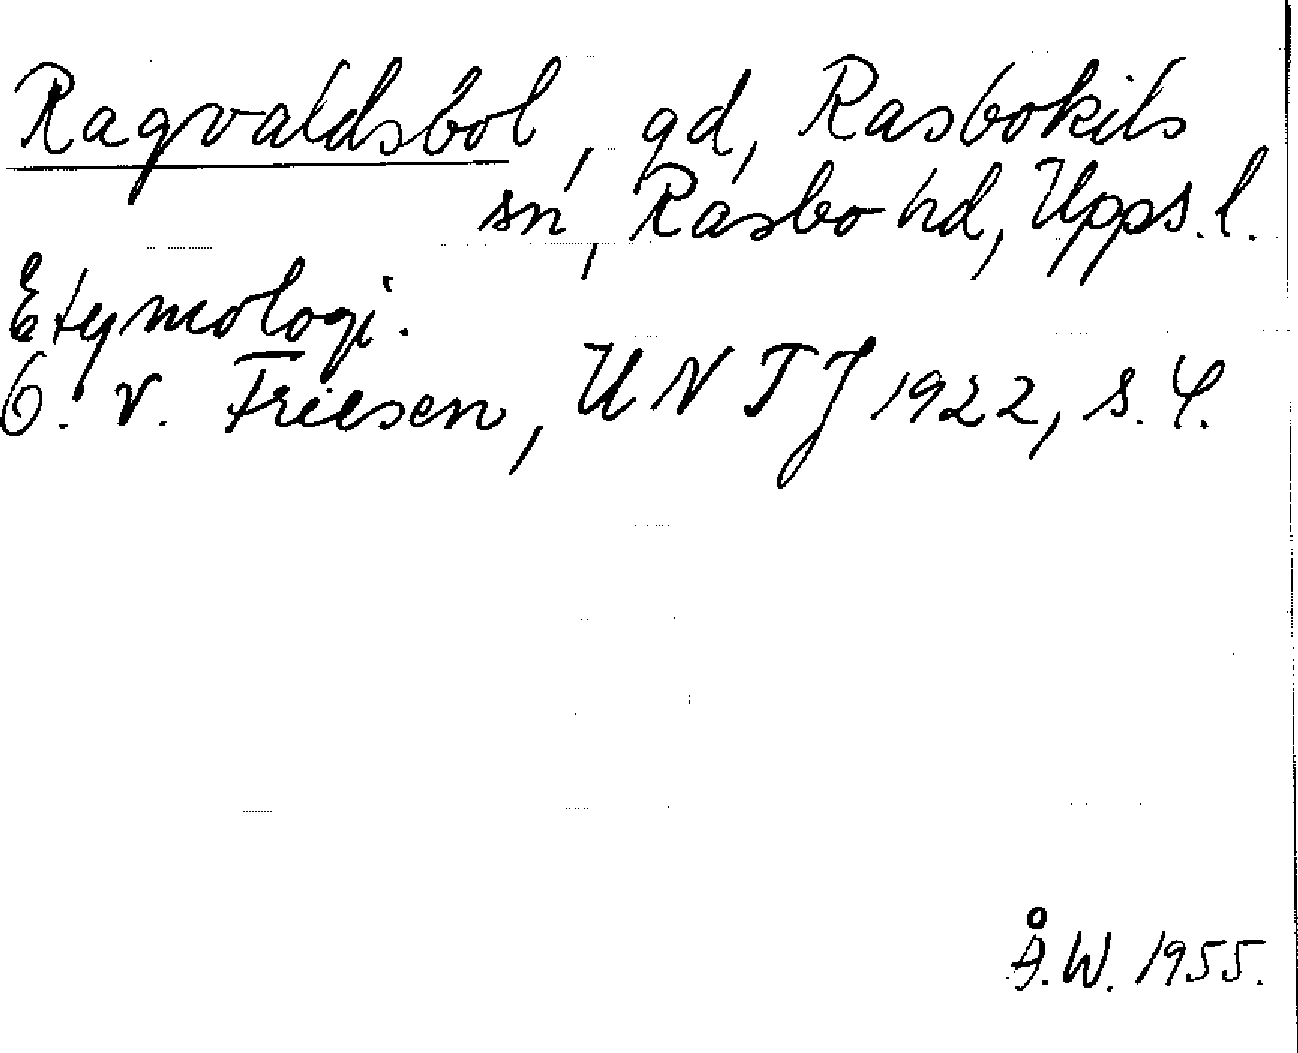 Ragvaldsbol, gd, Rasbokils
sn, Rasbo hd, Upps. l.
Etymologi.
O. v. Friesen, UNTJ 1922, s. 4.
Å.W. 1955.